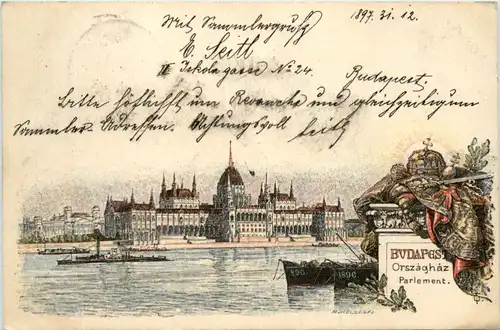 Mit Sammlergruß 1897. 31. 12.
E. Seitl
II Iskola gasse No 24.
Budapest.
Bitte höflichst um Revanche und gleichzeitig um
Sammler-Adressen. Achtungsvoll
Seitl
896 1896
BUDAPEST
Országház
Parlement.